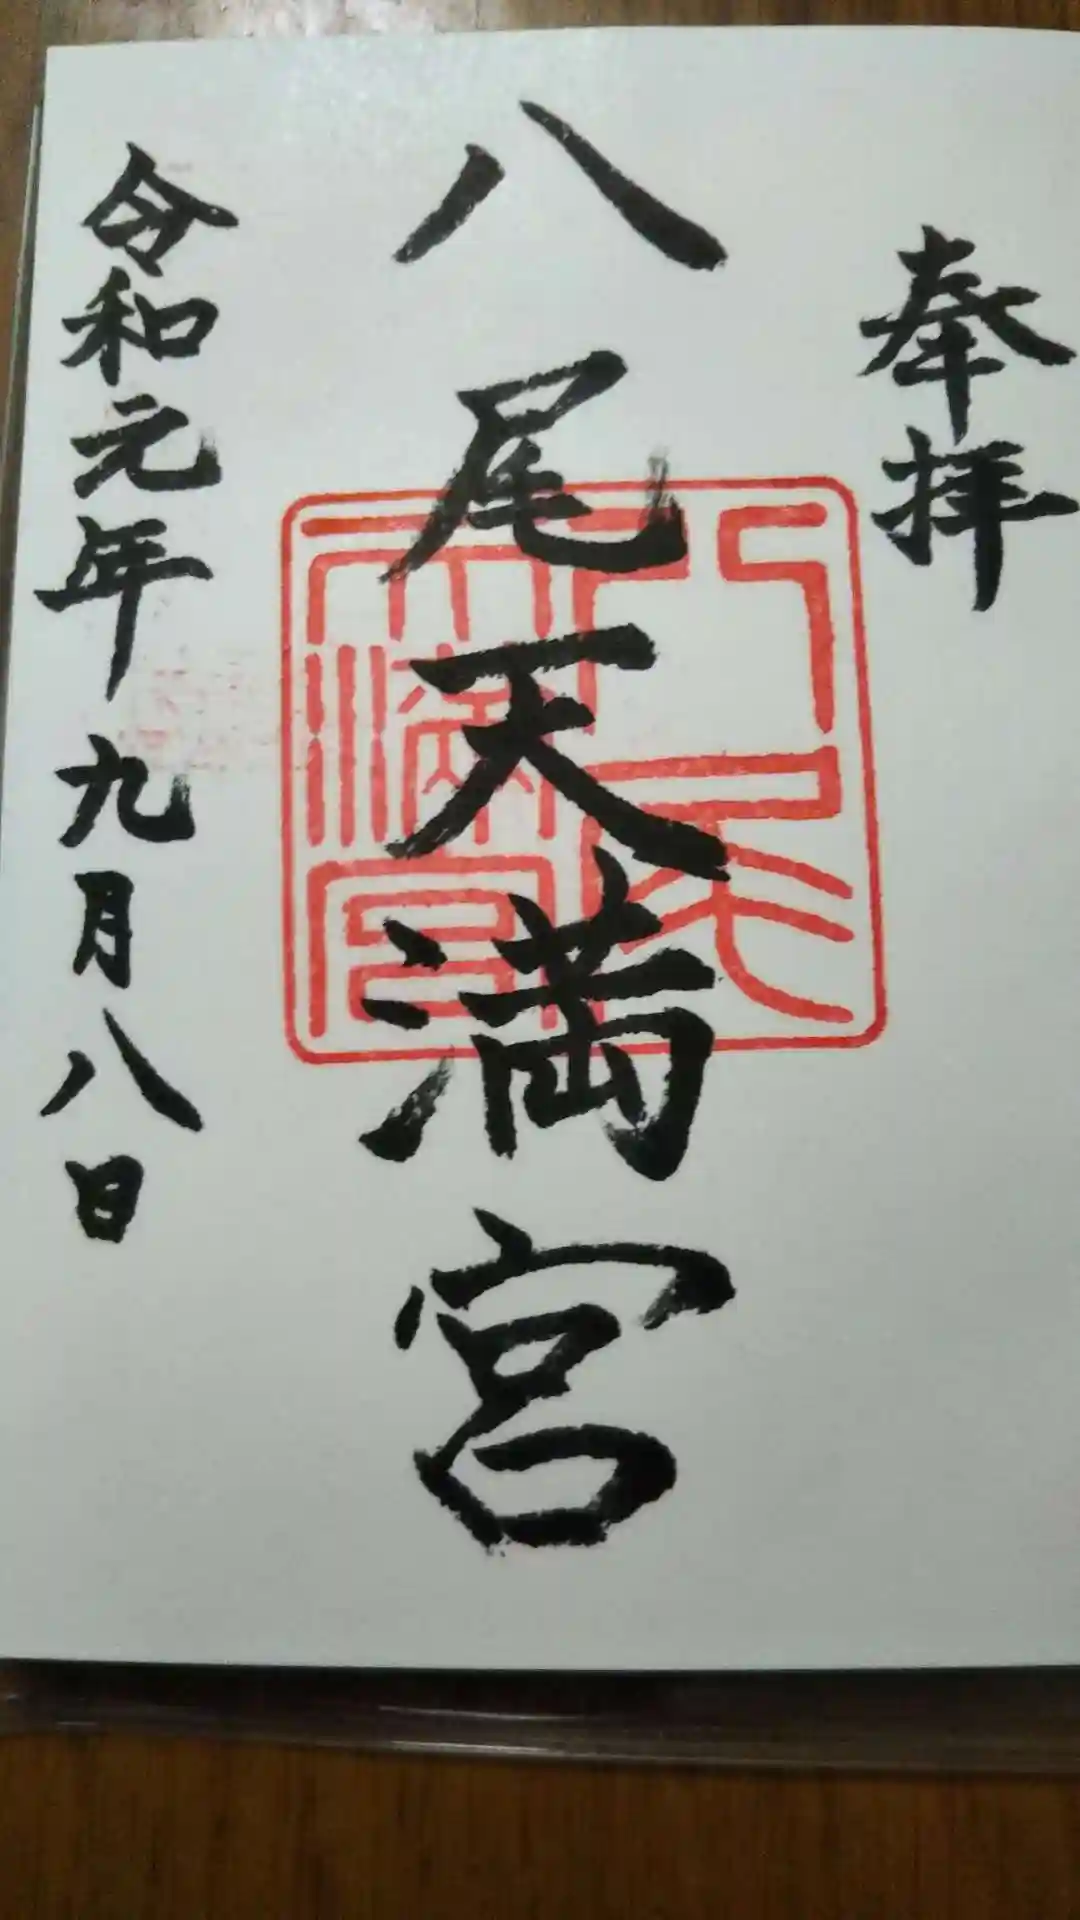 奉拝
八尾天満宮
令和元年九月八日
八尾
天満宮